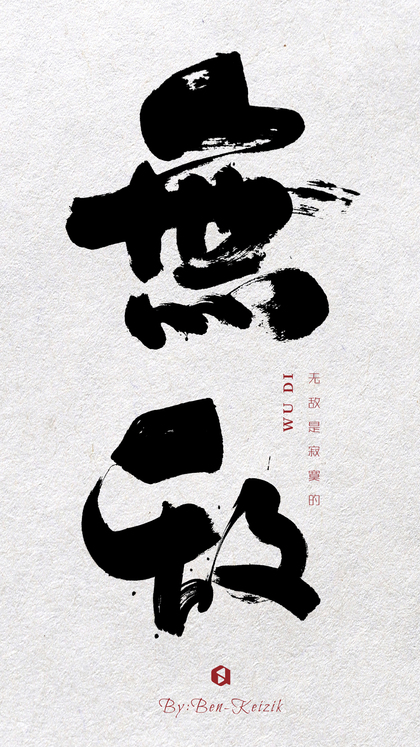 無敌
WU DI
无敌是寂寞的
By:Ben-Keizik